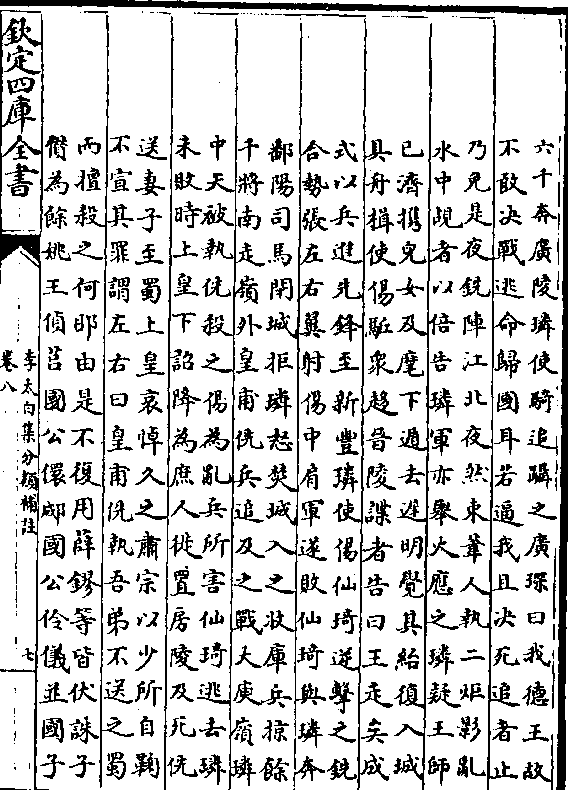 六千奔廣陵璘使騎追躡之廣琛曰我德王故
不敢决戰逃命歸國耳若逼我且决死追者止
乃免是夜銑陣江北夜然束葦人執二炬影亂
水中覘者以倍告璘軍亦舉火應之璘疑王師
已濟攜兒女及麾下遁去遲明覺其紿復入城
具舟楫使偒駈衆趍晉陵諜者告曰王走矣成
式以兵進先鋒至新豐璘使偒仙琦逆擊之銑
合勢張左右翼射偒中肩軍遂敗仙琦與璘奔
鄱陽司馬閉城拒璘怒焚城入之收庫兵掠餘
千將南走嶺外皇甫侁兵追及之戰大庾嶺璘
中矢被執侁殺之偒為亂兵所害仙琦逃去璘
未敗時上皇下詔降為庶人徙置房陵及死侁
送妻子至蜀上皇哀悼久之肅宗以少所自鞠
不宣其罪謂左右曰皇甫侁執吾弟不送之蜀
而擅殺之何耶由是不復用薛鏐等皆伏誅子
儹為餘姚王偵莒國公儇郕國公伶儀並國子
欽定四庫全書
李太白集分類補註
卷八
七